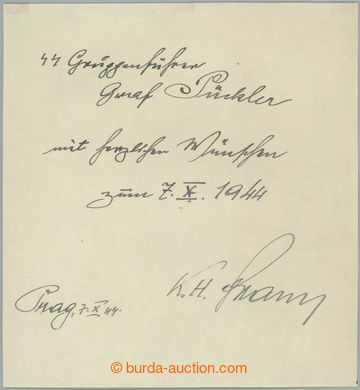 SS Gruppenführer
Graf Pückler
mit herzlichen Wünschen
zum 7. X. 1944
K. H. Frank
Prag, 7. X 44.
© burda-auction.com